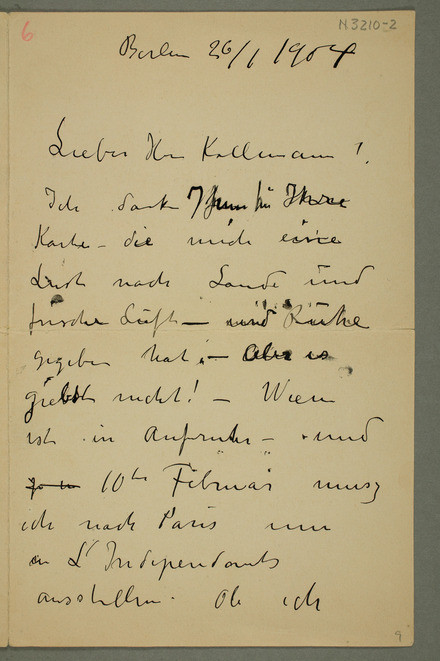 6
N 3210-2
Berlin 26/1 1904
Lieber Herr Kollmann!
Ich danke Ihnen für Ihre
Karte – die mich eine
Lust nach Lande und
frische Luft – und Ruhe
gegeben hat – Aber es
giebt nicht! – Wien
ist in Aufruhr – und
10ten Februar musz
ich nach Paris um
in L'Independants
ausstellen. Ob ich
9